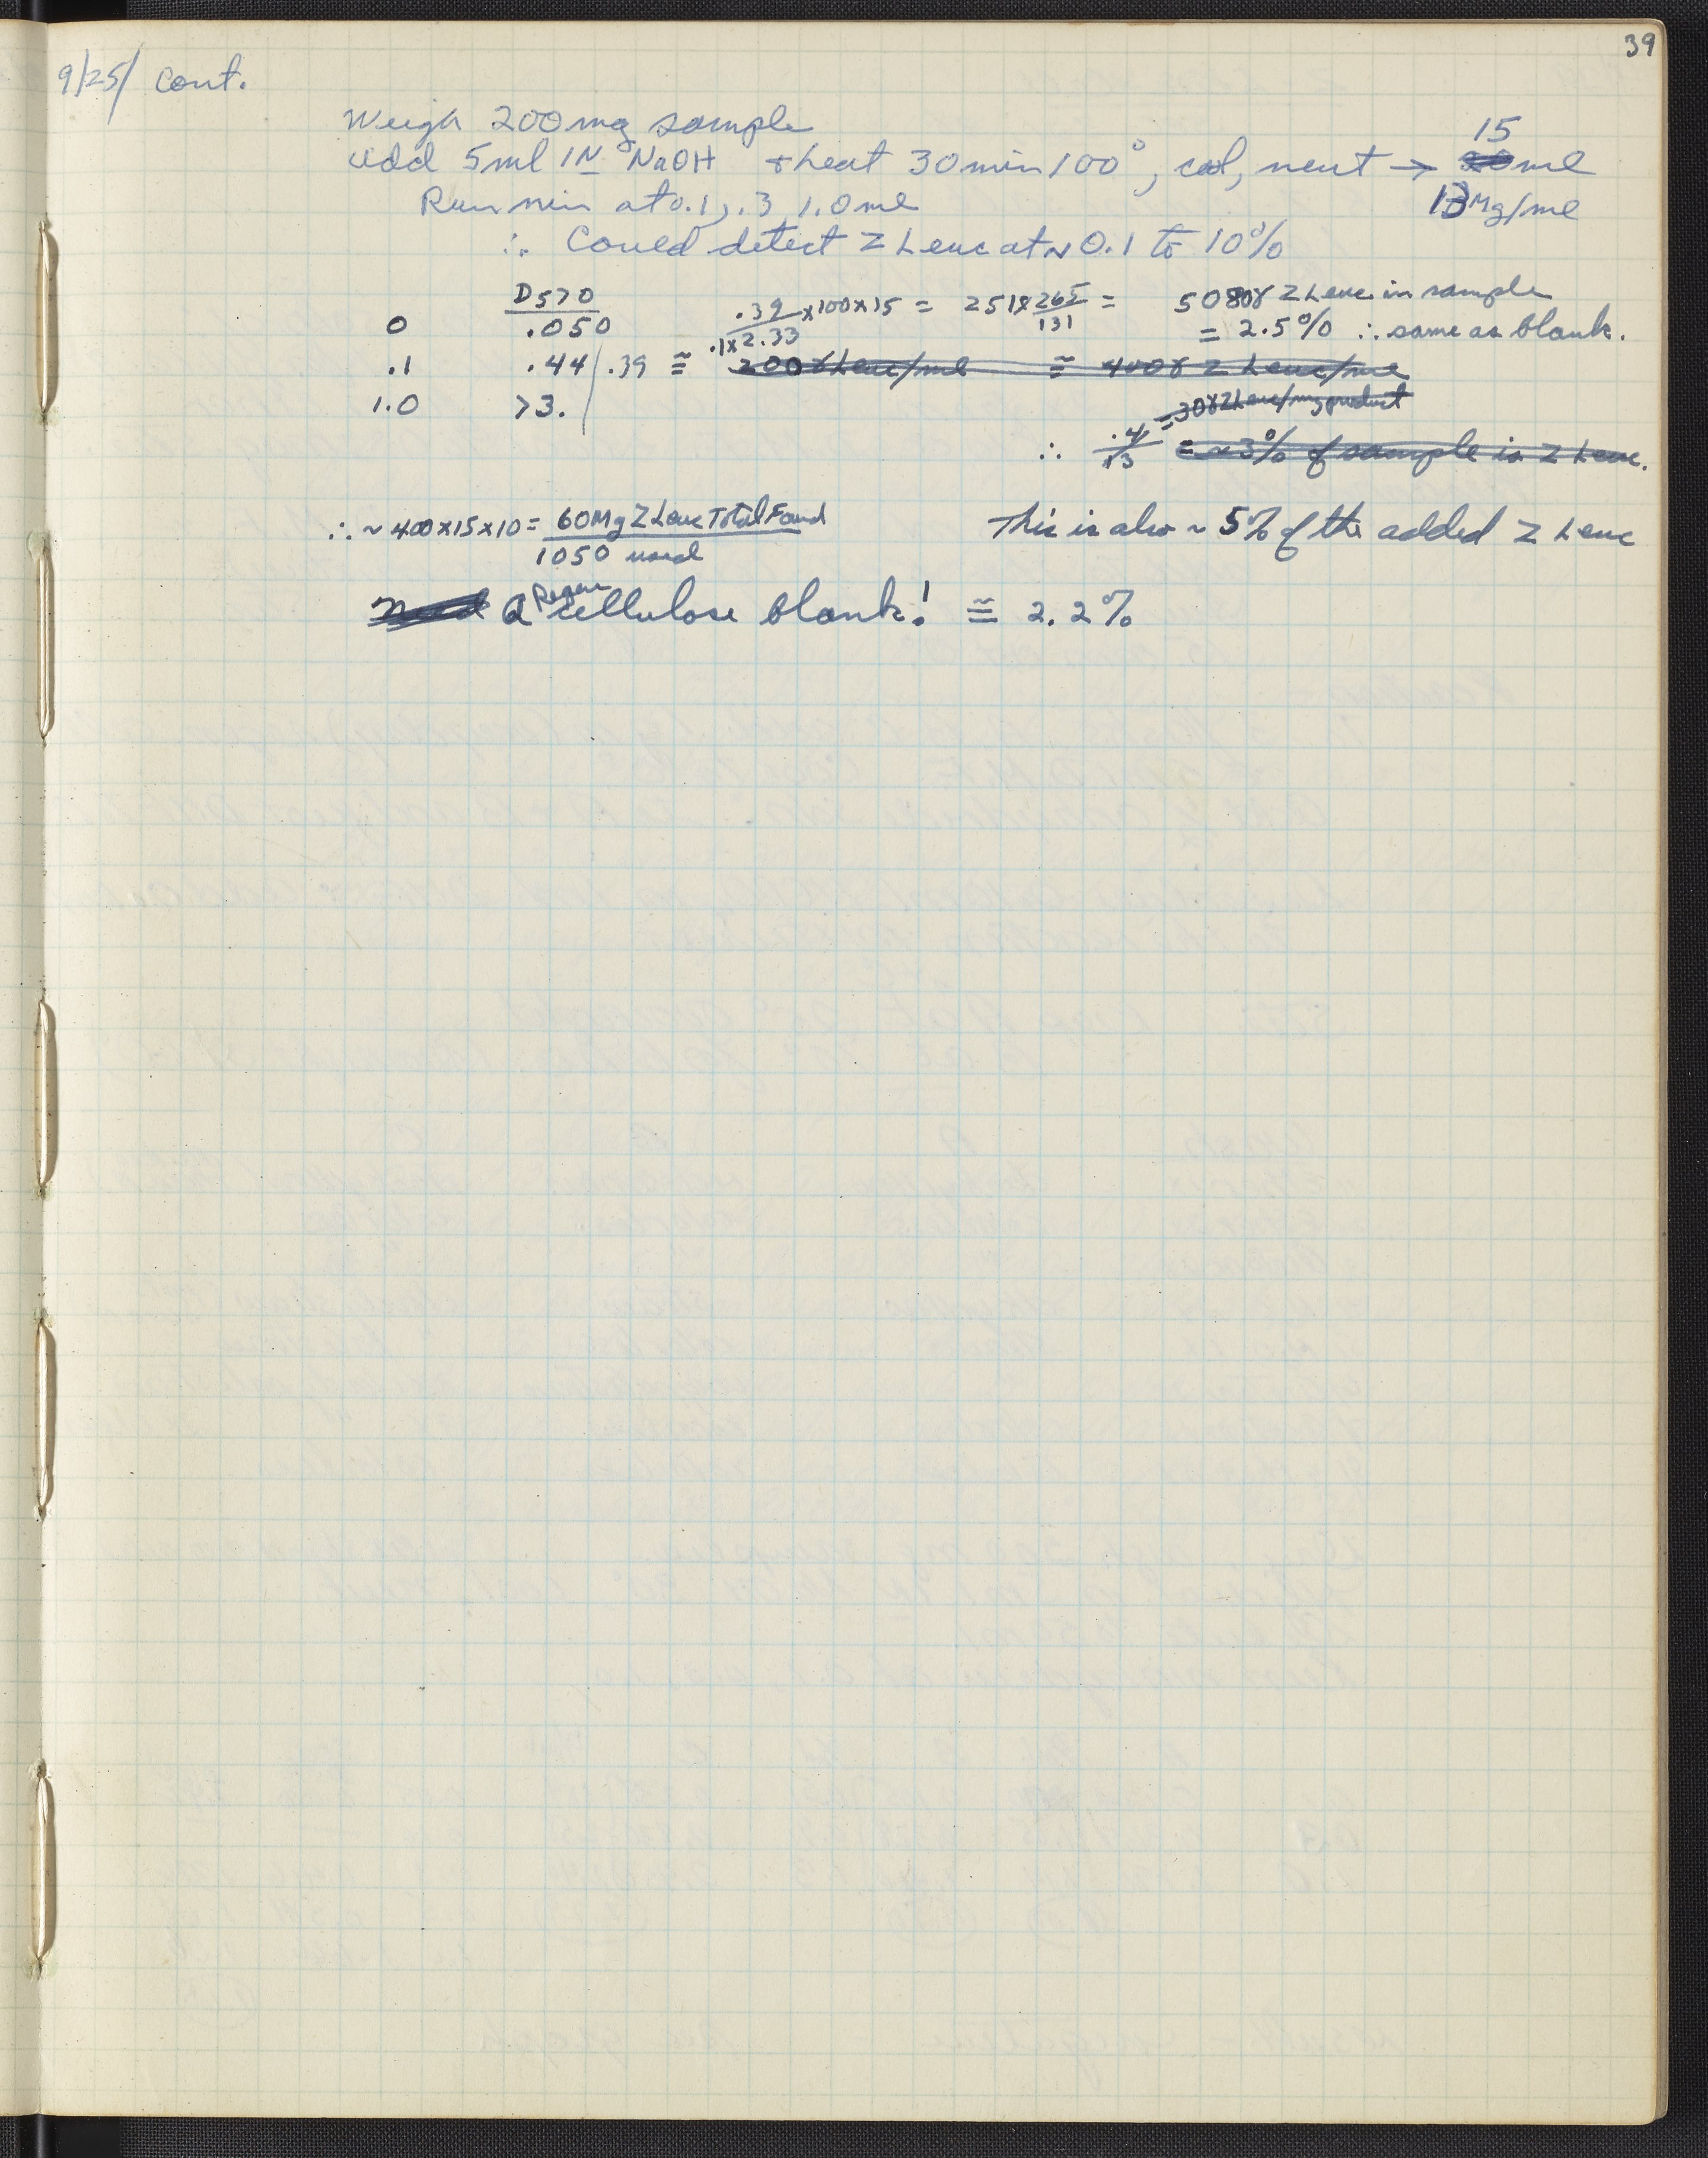 39
9/25/ Cont.
Weigh 200 mg sample
Add 5ml 1N NaOH + heat 30 min 100°, cool, neut → 15 ml
13 Mg/ml
Run nin at 0.1, .3, 1.0 ml
∴ Could detect Z Leuc at ~ 0.1 to 10%
D570
0 .050
.1 .44 / .39 ≅ 200 γ Leuc/ml ≅ 400 γ Z Leuc/ml
1.0 >3.
.39/.1x2.33 x100x15 = 2518 x 265/131 = 5080γ Z Leuc in sample
= 2.5% ∴ same as blank.
= 30γ Z Leuc/mg product
∴ .4/13 = ~3% of sample is Z Leuc.
∴ ~ 400x15x10 = 60 Mg Z Leuc Total Found
1050 used
This is also ~ 5% of the added Z Leuc
Need a Regen cellulose blank! ≅ 2.2%